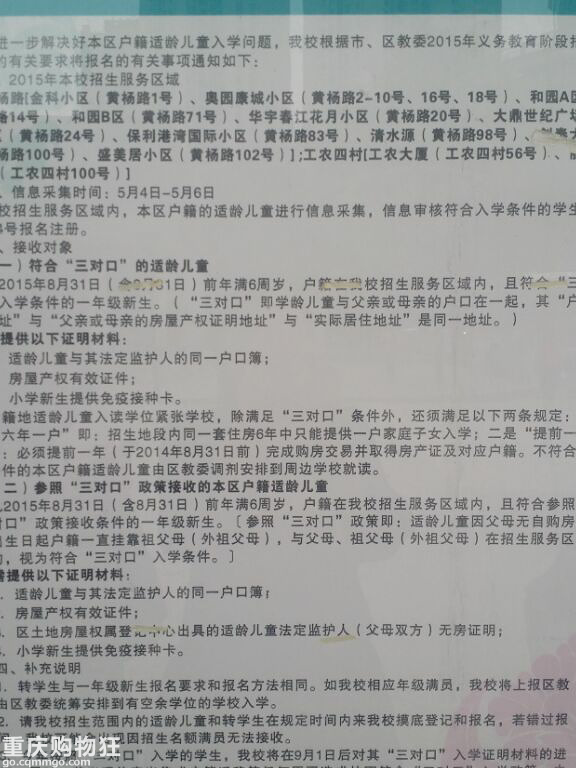 进一步解决好本区户籍适龄儿童入学问题，我校根据市、区教委2015年义务教育阶段招
的有关要求将报名的有关事项通知如下：
2015年本校招生服务区域
杨路[金科小区（黄杨路1号）、奥园康城小区（黄杨路2-10号、16号、18号）、和园A区
路14号）、和园B区（黄杨路71号）、华宇春江花月小区（黄杨路20号）、大鼎世纪广场
（黄杨路24号）、保利港湾国际小区（黄杨路83号）、清水源（黄杨路98号）、
杨路100号）、盛美居小区（黄杨路102号）];工农四村[工农大厦（工农四村56号）、
（工农四村100号）]
、信息采集时间：5月4日-5月6日
校招生服务区域内，本区户籍的适龄儿童进行信息采集，信息审核符合入学条件的学生
号报名注册。
、接收对象
一）符合“三对口”的适龄儿童
2015年8月31日（含8月31日）前年满6周岁，户籍在我校招生服务区域内，且符合“三
入学条件的一年级新生。（“三对口”即学龄儿童与父亲或母亲的户口在一起，其“户
址”与“父亲或母亲的房屋产权证明地址”与“实际居住地址”是同一地址。）
提供以下证明材料：
适龄儿童与其法定监护人的同一户口簿；
房屋产权有效证件；
小学新生提供免疫接种卡。
籍地适龄儿童入读学位紧张学校，除满足“三对口”条件外，还须满足以下两条规定：
六年一户”即：招生地段内同一套住房6年中只能提供一户家庭子女入学；二是“提前一
：必须提前一年（于2014年8月31日前）完成购房交易并取得房产证及对应户籍。不符合
件的本区户籍适龄儿童由区教委调剂安排到周边学校就读。
二）参照“三对口”政策接收的本区户籍适龄儿童
2015年8月31日（含8月31日）前年满6周岁，户籍在我校招生服务区域内，且符合参照
对口”政策接收条件的一年级新生。〔参照“三对口”政策即：适龄儿童因父母无自购房
出生日起户籍一直挂靠祖父母（外祖父母），与父母、祖父母（外祖父母）在招生服务区
，视为符合“三对口”入学条件。〕
需提供以下证明材料：
．适龄儿童与其法定监护人的同一户口簿；
．房屋产权有效证件；
3．区土地房屋权属登记中心出具的适龄儿童法定监护人（父母双方）无房证明；
4．小学新生提供免疫接种卡。
四、补充说明
1．转学生与一年级新生报名要求和报名方法相同。如我校相应年级满员，我校将上报区教
由区教委统筹安排到有空余学位的学校入学。
2．请我校招生范围内的适龄儿童和转学生在规定时间内来我校摸底登记和报名，若错过报
因招生名额满员无法接收。
对口”入学的学生，我校将在9月1日后对其“三对口”入学证明材料的进
重庆购物狂
go.cqmmgo.com